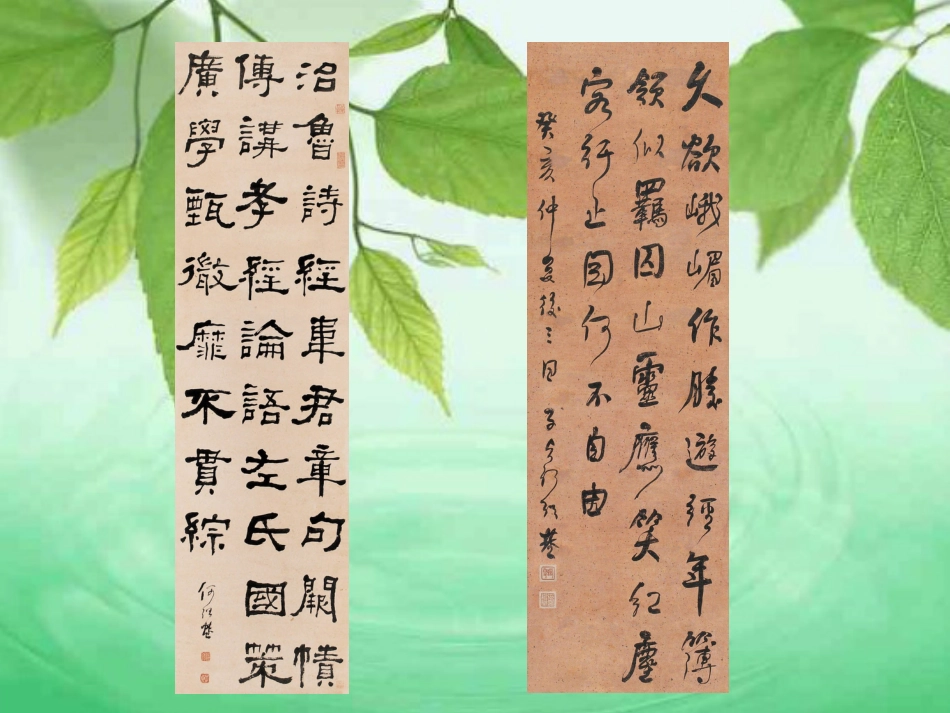 治魯詩經韋君章句闕幘
傳講孝經論語左氏國策
廣學甄徹靡不貫綜
何紹基
久欲峨嵋作勝遊經年簿
領似羈囚山靈應笑紅塵
客行止因何不自由
癸亥仲夏後三日 子貞何紹基